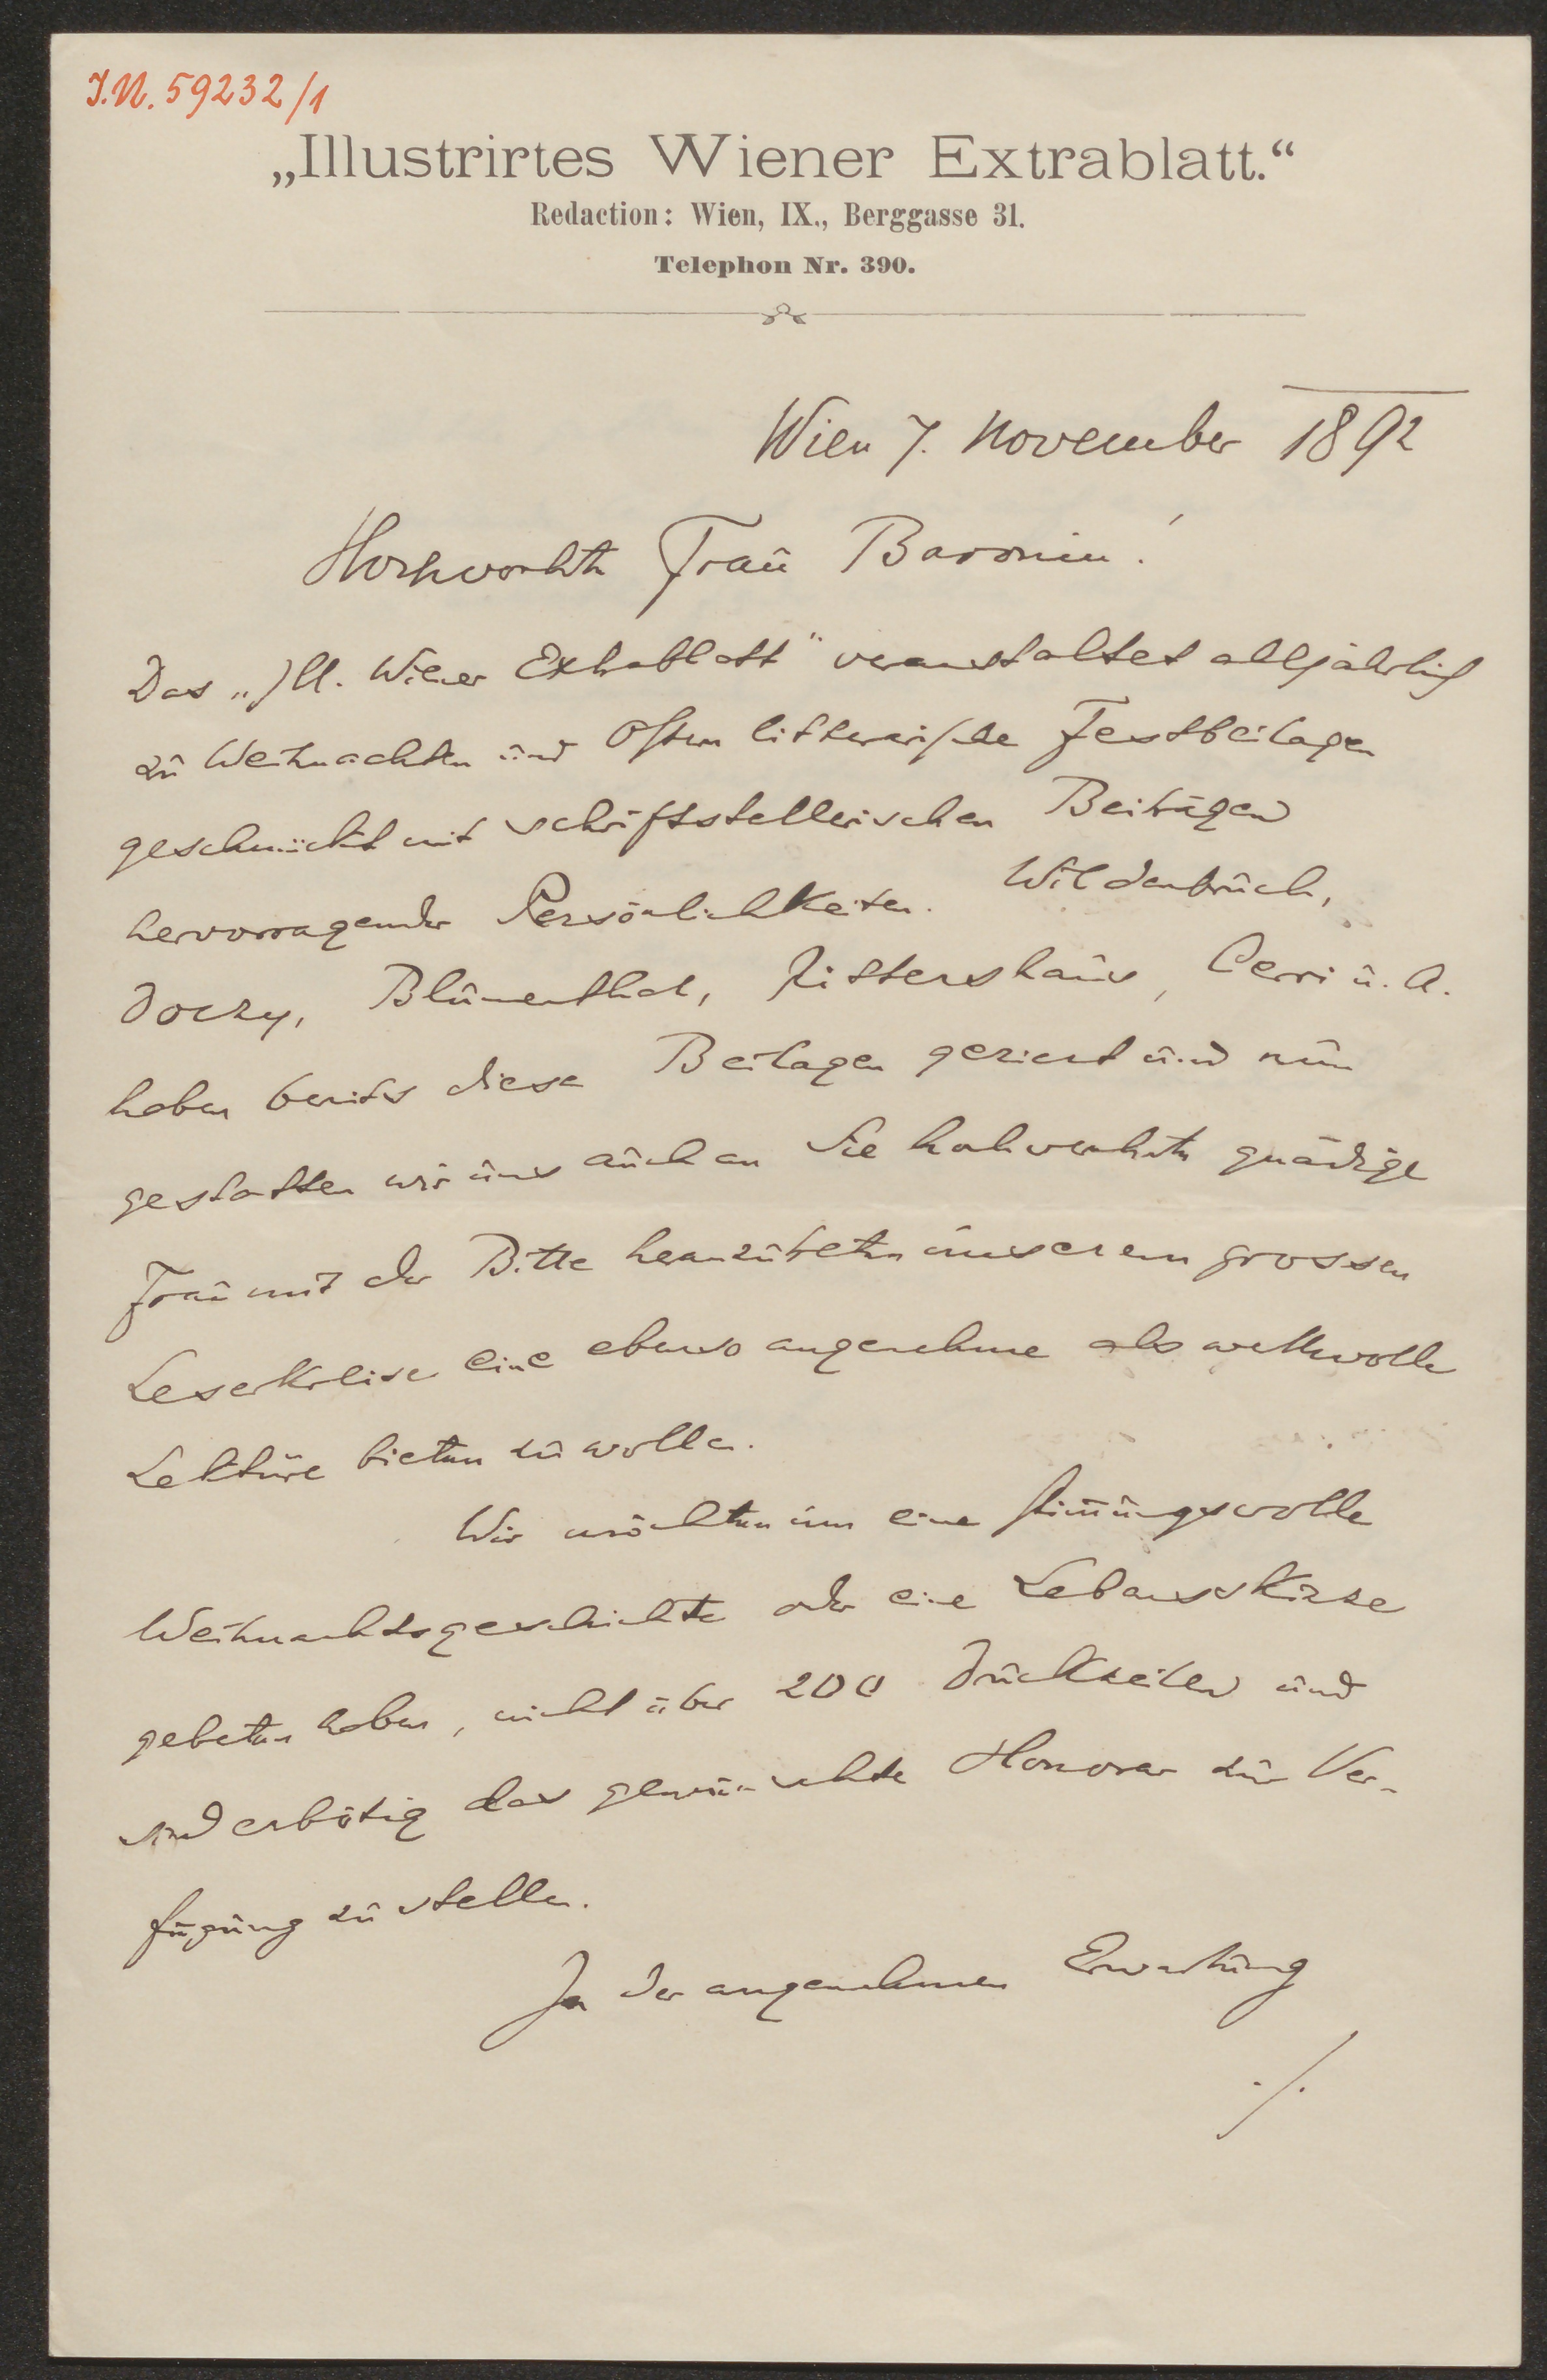 I.N. 59232/1
„Illustrirtes Wiener Extrablatt.“
Redaction: Wien, IX., Berggasse 31.
Telephon Nr. 390.
Wien 7. November 1892
Hochverehrte Frau Baronin!
Das „Ill. Wiener Extrablatt“ veranstaltet alljährlich
zu Weihnachten und Ostern litterarische Festbeilagen
geschmückt mit schriftstellerischen Beiträgen
hervorragender Persönlichkeiten. Wildenbruch,
Doczy, Blumenthal, Rittershaus, Cerri u. A.
haben bereits diese Beilagen geziert und nun
gestatten wir uns auch an Sie hochverehrte gnädige
Frau mit der Bitte heranzutreten unserem grossen
Leserkreise eine ebenso angenehme als wertvolle
Lektüre bieten zu wollen.
Wir möchten um eine stimmungsvolle
Weihnachtsgeschichte oder eine Lebensskizze
gebeten haben, nicht über 200 Druckzeilen und
sind erbötig das gewünschte Honorar zur Ver-
fügung zu stellen.
In der angenehmen Erwartung
./.